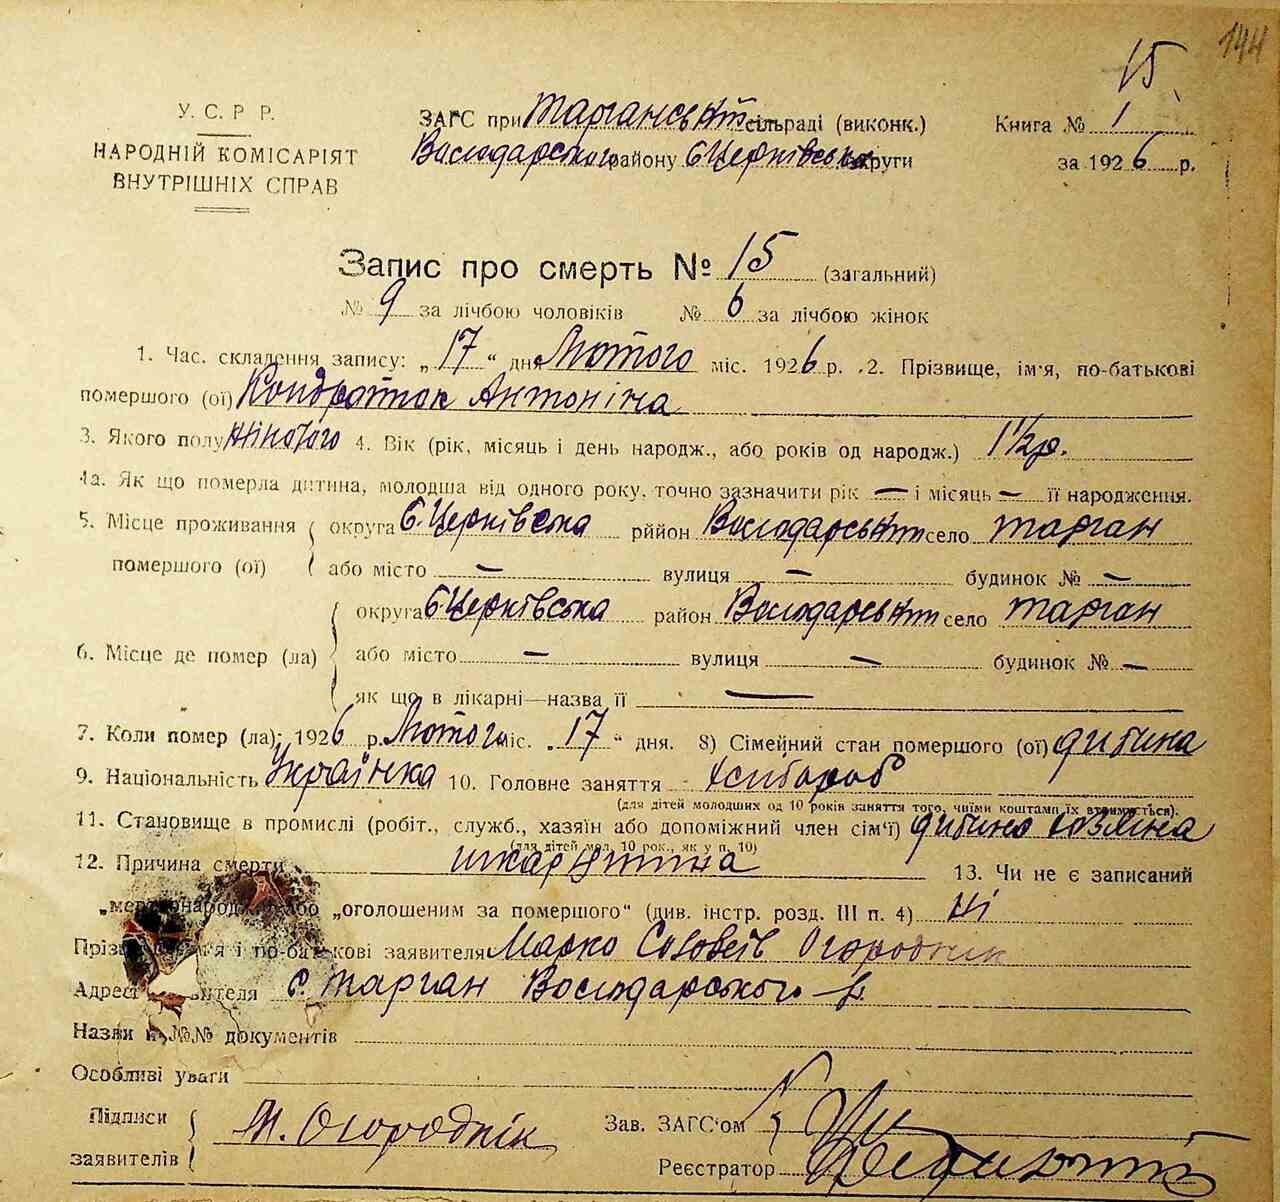 144
15
У. С. Р Р.
НАРОДНІЙ КОМІСАРІЯТ
ВНУТРІШНІХ СПРАВ
ЗАГС при Тарганській сільраді (виконк.)
Володарского району Б Церківської округи
Книга № 1
за 1926 р.
Запис про смерть № 15 (загальний)
№ 9 за лічбою чоловіків № 6 за лічбою жінок
1. Час. складення запису: „17“ дня Лютого міс. 1926 р. 2. Прізвище, ім'я, по-батькові
помершого (ої) Кондратюк Антоніна
3. Якого полу жіночого 4. Вік (рік, місяць і день народж., або років од народж.) 1½ р.
4а. Як що померла дитина, молодша від одного року, точно зазначити рік — і місяць — її народження.
5. Місце проживання помершого (ої) округа Б. Церківська рййон Володарський село Тарган
або місто — вулиця — будинок № —
6. Місце де помер (ла) округа Б. Церківська район Володарський село Тарган
або місто — вулиця — будинок № —
як що в лікарні—назва її —
7. Коли помер (ла): 1926 р. Лютого міс. „17“ дня. 8) Сімейний стан помершого (ої) дитина
9. Національність Українка 10. Головне заняття Хлібороб
(для дітей молодших од 10 років заняття того, чиїми коштами їх втримується).
11. Становище в промислі (робіт., служб., хазяїн або допоміжний член сім'ї) дитина хазяїна
(для дітей мол. 10 рок., як у п. 10)
12. Причина смерти шкарлятина 13. Чи не є записаний
„мертвонародж.“ або „оголошеним за помершого“ (див. інстр. розд. III п. 4) ні
Прізвище, ім'я і по-батькові заявителя Марко Соловеїв Огороднік
Адреса заявителя с. Тарган Володарського р.
Назви й №№ документів
Особливі уваги
Підписи заявителів М. Огороднік
Зав. ЗАГС'ом
Реєстратор